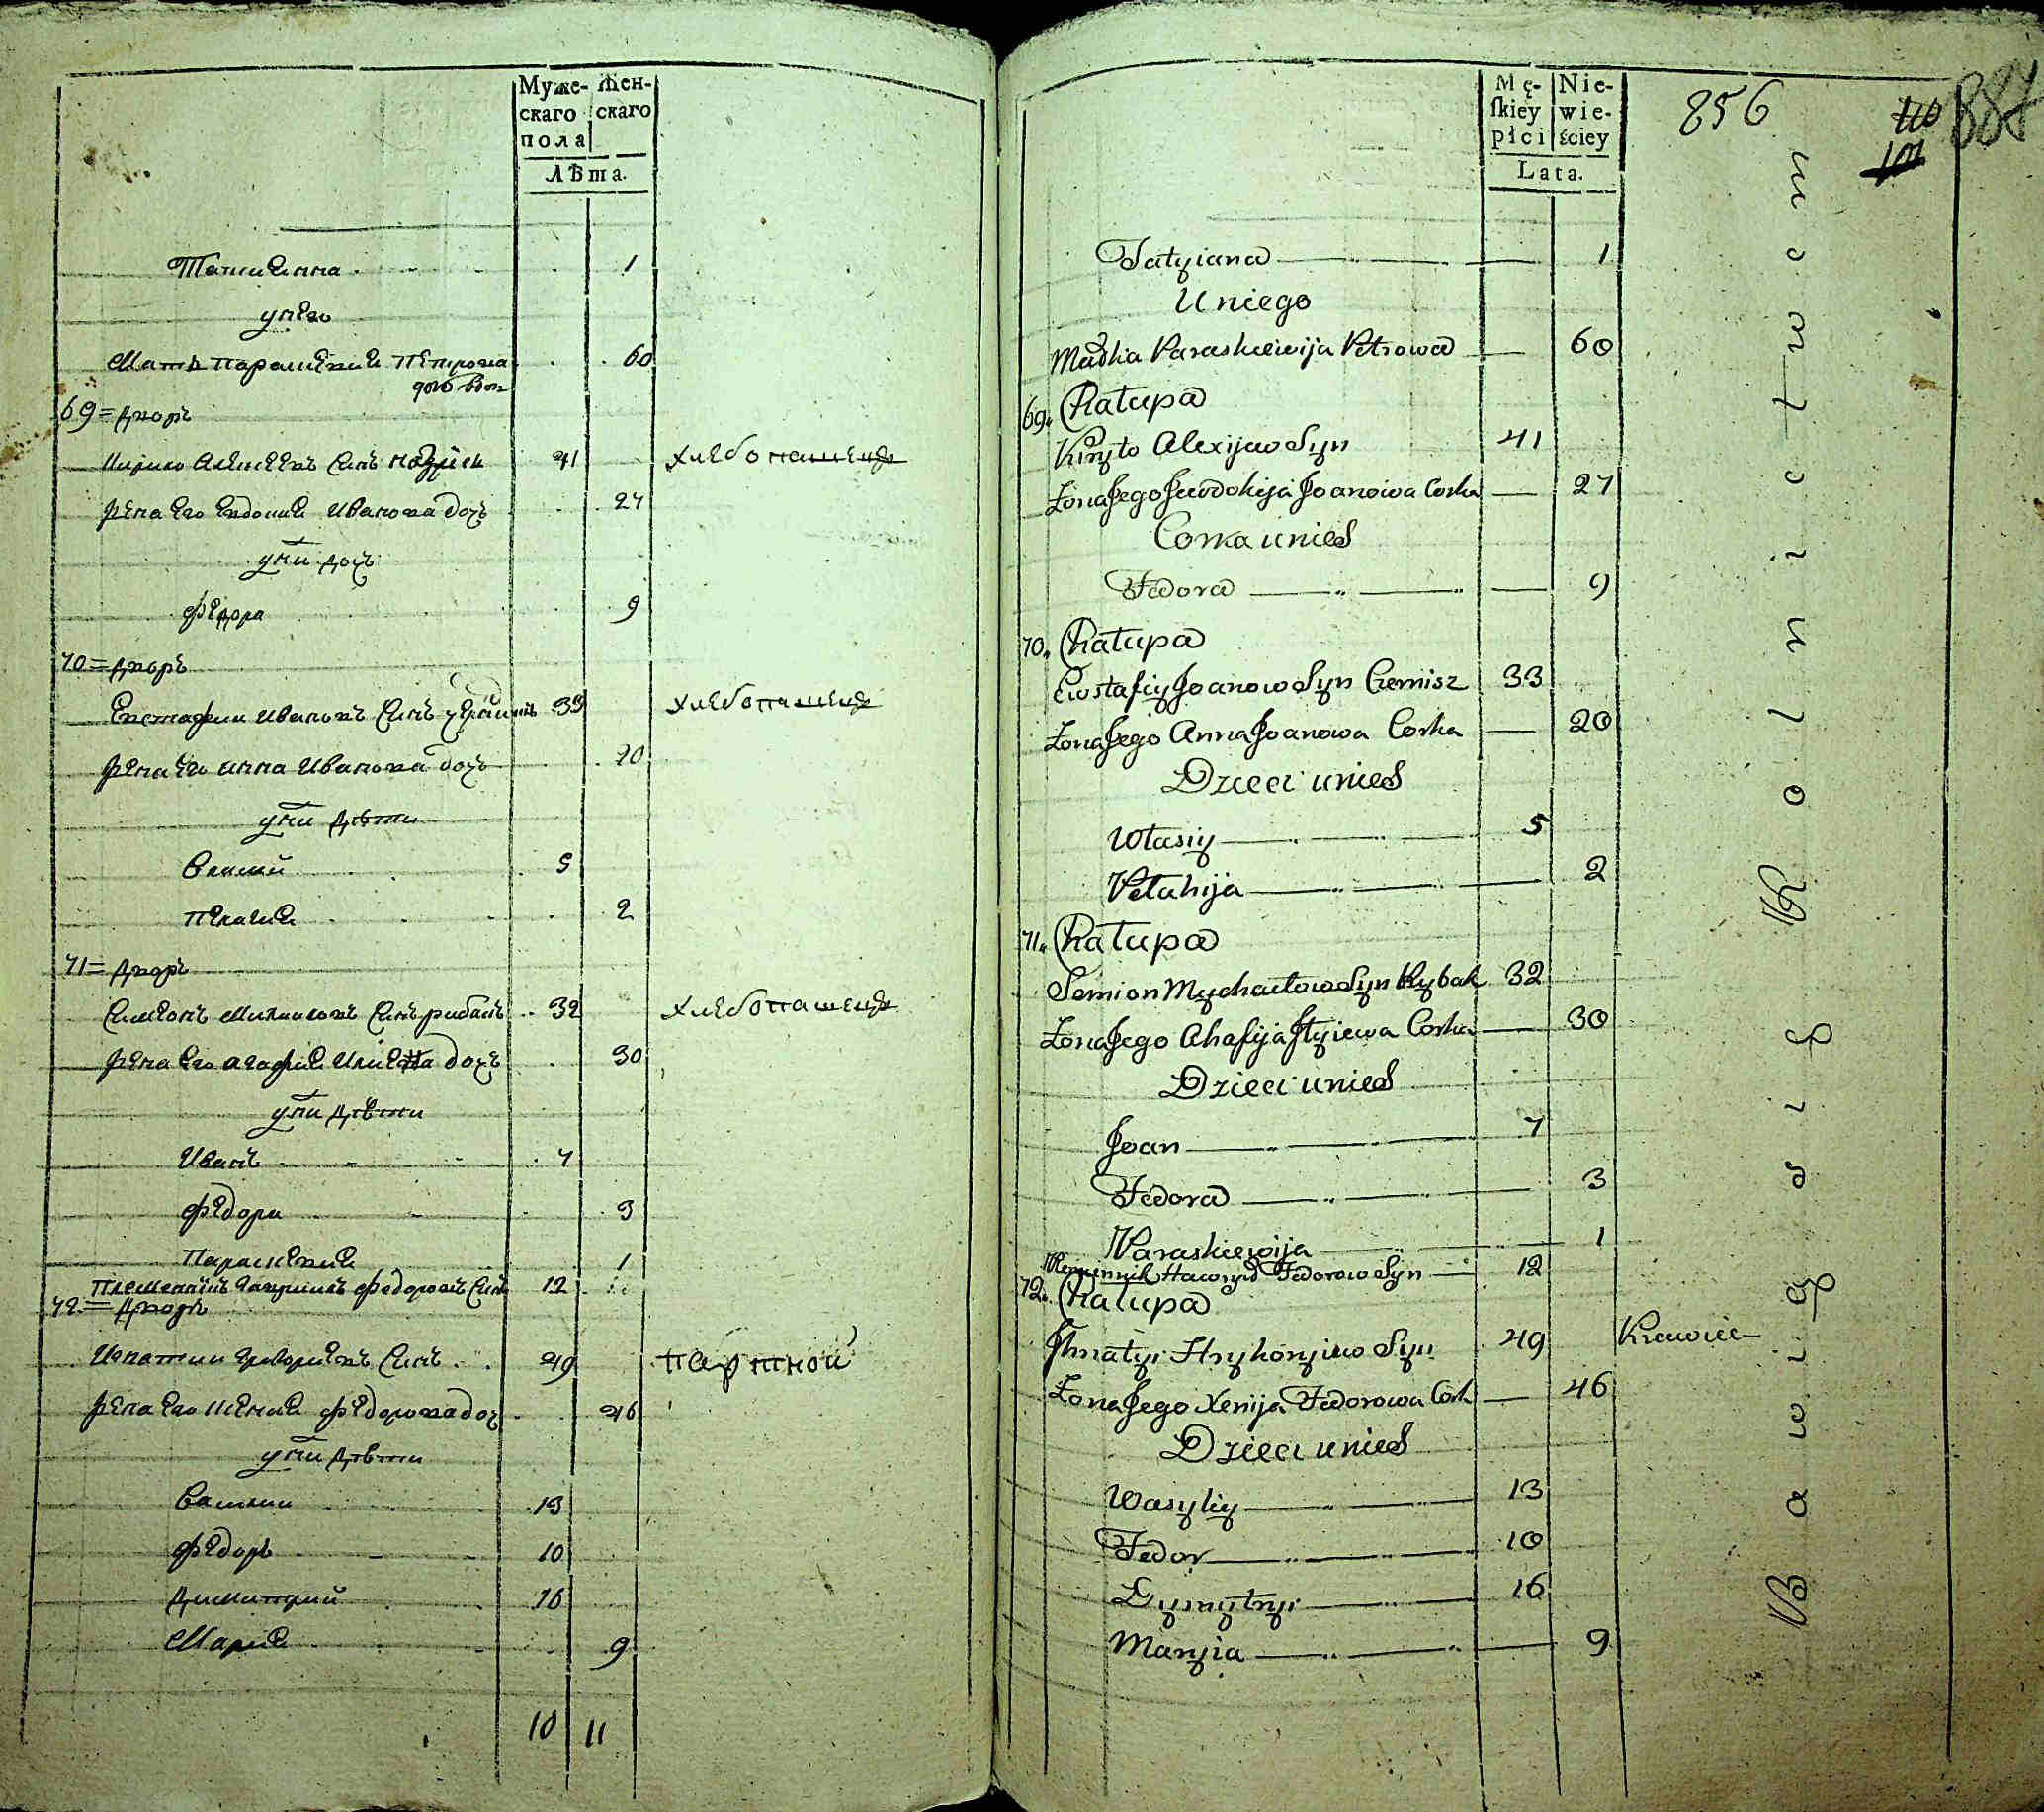 Муже-
скаго
пола
Жен-
скаго
Лѣта.
Татиянна 1
унего
Мать Параскевия Петрова 60
дочь вдова
69 = Дворъ
Кирило Алексѣевъ Синъ 41 хлебопашецъ
Жена Его Евдокия Иванова дочь 27
уних дочь
Федора 9
70 = Дворъ
Евстафии Ивановъ Синъ 33 хлебопашецъ
Жена Его Анна Иванова дочь 20
уних дѣти
Власий 5
Пелагия 2
71 = Дворъ
Симеонъ Михайловъ Синъ рибакъ 32 хлебопашецъ
Жена Его Агафия Илиева дочь 30
уних дѣти
Иванъ 7
Федора 3
Параскевия 1
Племенникъ Гаврилъ Федоровъ Синъ 12
72 = Дворъ
Игнатии Григориевъ Синъ 49 портной
Жена Его Ксения Федорова доч 46
уних дѣти
Василии 13
Федоръ 10
Димитрий 16
Мария 9
10 11
Mę-
ſkiey
płci
Nie-
wie-
ściey
Lata.
856
110
101
881
Tatyiana 1
U niego
Matka Paraskiewija Petrowa 60
69. Chałupa
Kiryło Alexijew Syn 41
Żona Jego Jewdokija Joanowa Corka 27
Corka u nich
Fedora 9
70. Chałupa
Ewstafiy Joanow Syn Czemisz 33
Żona Jego Anna Joanowa Corka 20
Dzieci u nich
Własiy 5
Pelahija 2
71. Chałupa
Semion Mychaiłow Syn Rybak 32
Żona Jego Ahafija Iłyiewa Corka 30
Dzieci u nich
Joan 7
Fedora 3
Paraskiewija 1
Plemennik Hawrył Fedorow Syn 12
72. Chałupa
Ihnatyi Hryhoryiew Syn 49 Krawiec
Żona Jego Xenija Fedorowa Cork 46
Dzieci u nich
Wasyliy 13
Fedor 10
Dymytryi 16
Maryia 9
Bawią się Rolnictwem